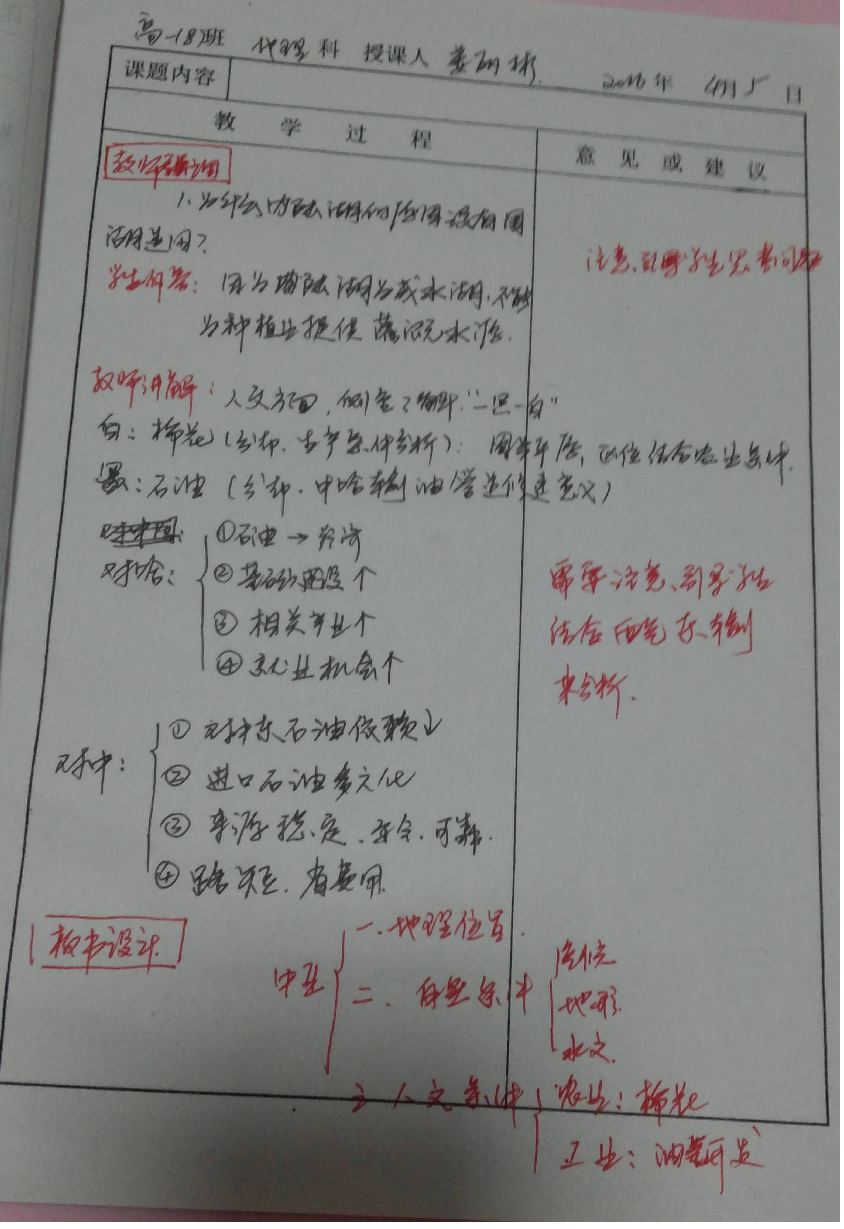 高一18班 地理科 授课人
2016年4月5日
课题内容
教学过程
意见或建议
教师
1.为什么内陆湖的 没有
湖
注意、引导学生思考问题
学生回答: 因为内陆湖为咸水湖,不能
为种植业提供灌溉水源.
教师讲解: 人文方面,侧重了解 "一黑一白"
白: 棉花(分布、生产条件分析): 结合农业条件.
黑: 石油(分布、中哈 油管道修建意义)
对中国:
对哈: ①石油→经济
②基础设施建设个
③相关产业个
④就业机会个
需要注意、引导学生
结合西气东输
来分析.
对中: ①对中东石油依赖↓
②进口石油多元化
③来源稳定、安全、可靠.
④路短、省费用
板书设计
中亚
一.地理位置.
二、自然条件
气候
地形
水文.
三 人文条件
农业: 棉花
工业: 油气开发